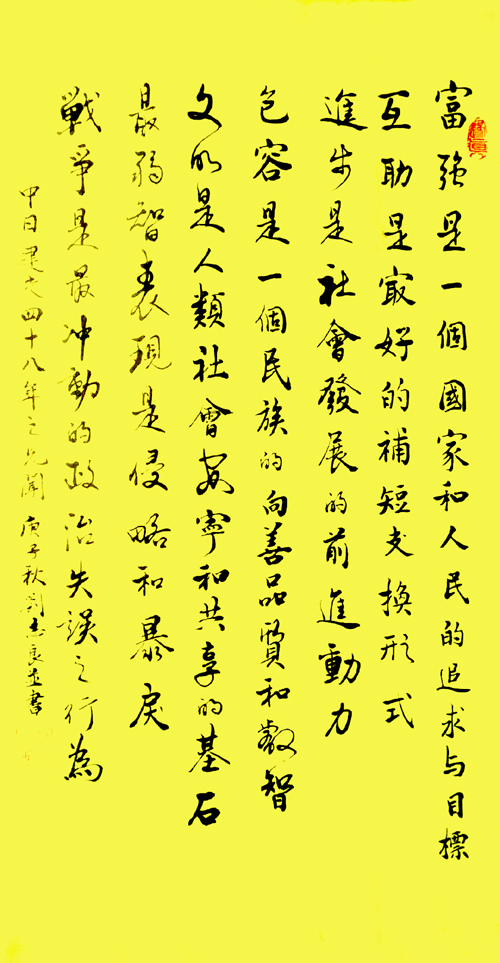 富強是一個國家和人民的追求与目標
互助是最好的補短支換形式
進步是社會發展的前進動力
包容是一個民族的向善品質和叡智
文明是人類社會安寧和共享的基石
最弱智表現是侵略和暴戾
戦爭是最冲動的政治失誤之行為
四十八年之 庚子秋劉志良並書